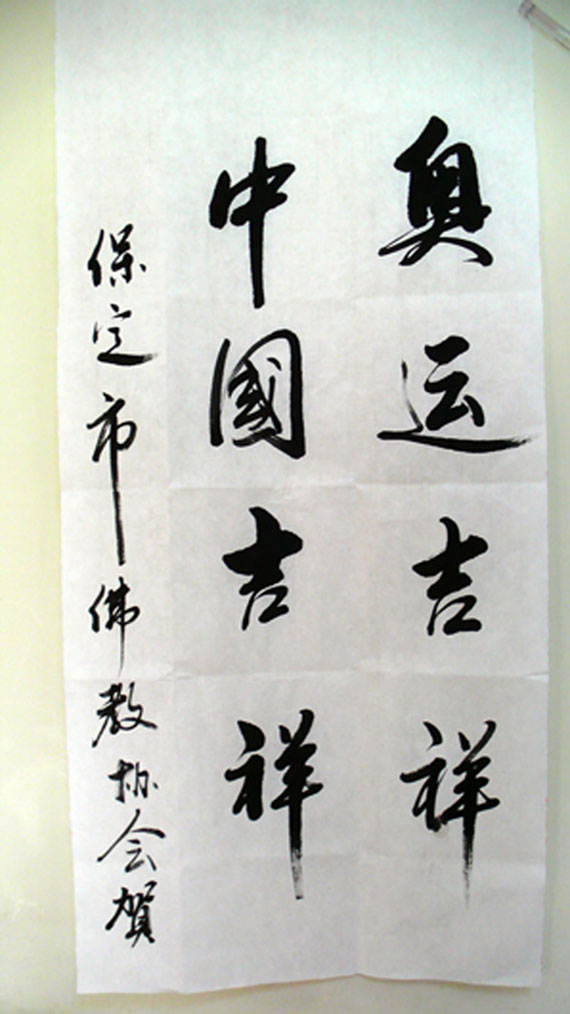 奥运吉祥
中國吉祥
保定市佛教协会贺